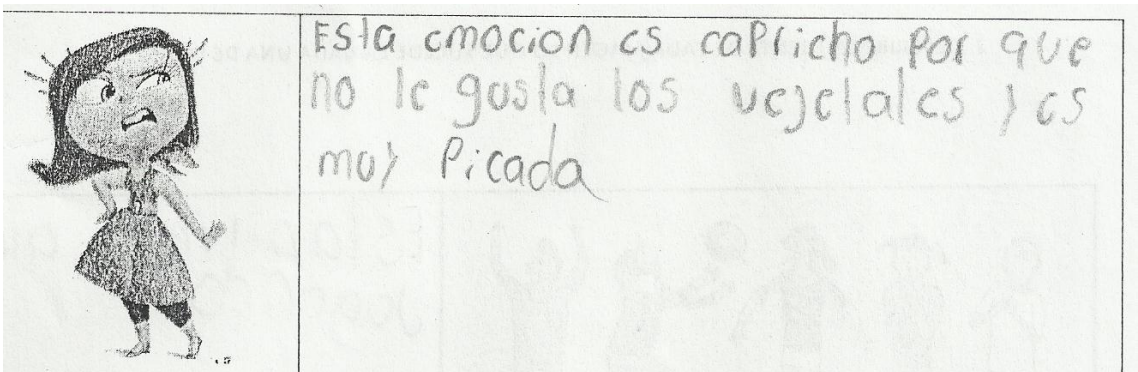 Esta emocion es capricho por que
no le gusta los vejetales y es
muy Picada